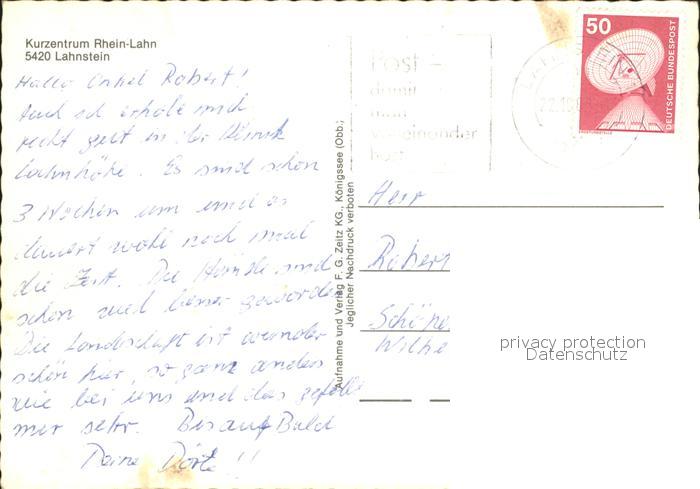 Kurzentrum Rhein-Lahn
5420 Lahnstein
Hallo Onkel Robert!
Auch ich erhole mich
recht gut in der Klinik
Lahnhöhe. Es sind schon
3 Wochen um und es
dauert wohl noch mal
die Zeit. Die Hände sind
schon viel besser geworden
Die Landschaft ist wunder
schön hier, so ganz anders
wie bei uns und das gefällt
mir sehr. Bis auf Bald
Deine Dörte!!
Aufnahme und Verlag F. G. Zeitz KG., Königssee (Obb.)
Jeglicher Nachdruck verboten
Post -
damit
man
einander
50
DEUTSCHE BUNDESPOST
Herr
Robert
Schöne
Wilhe
privacy protection
Datenschutz